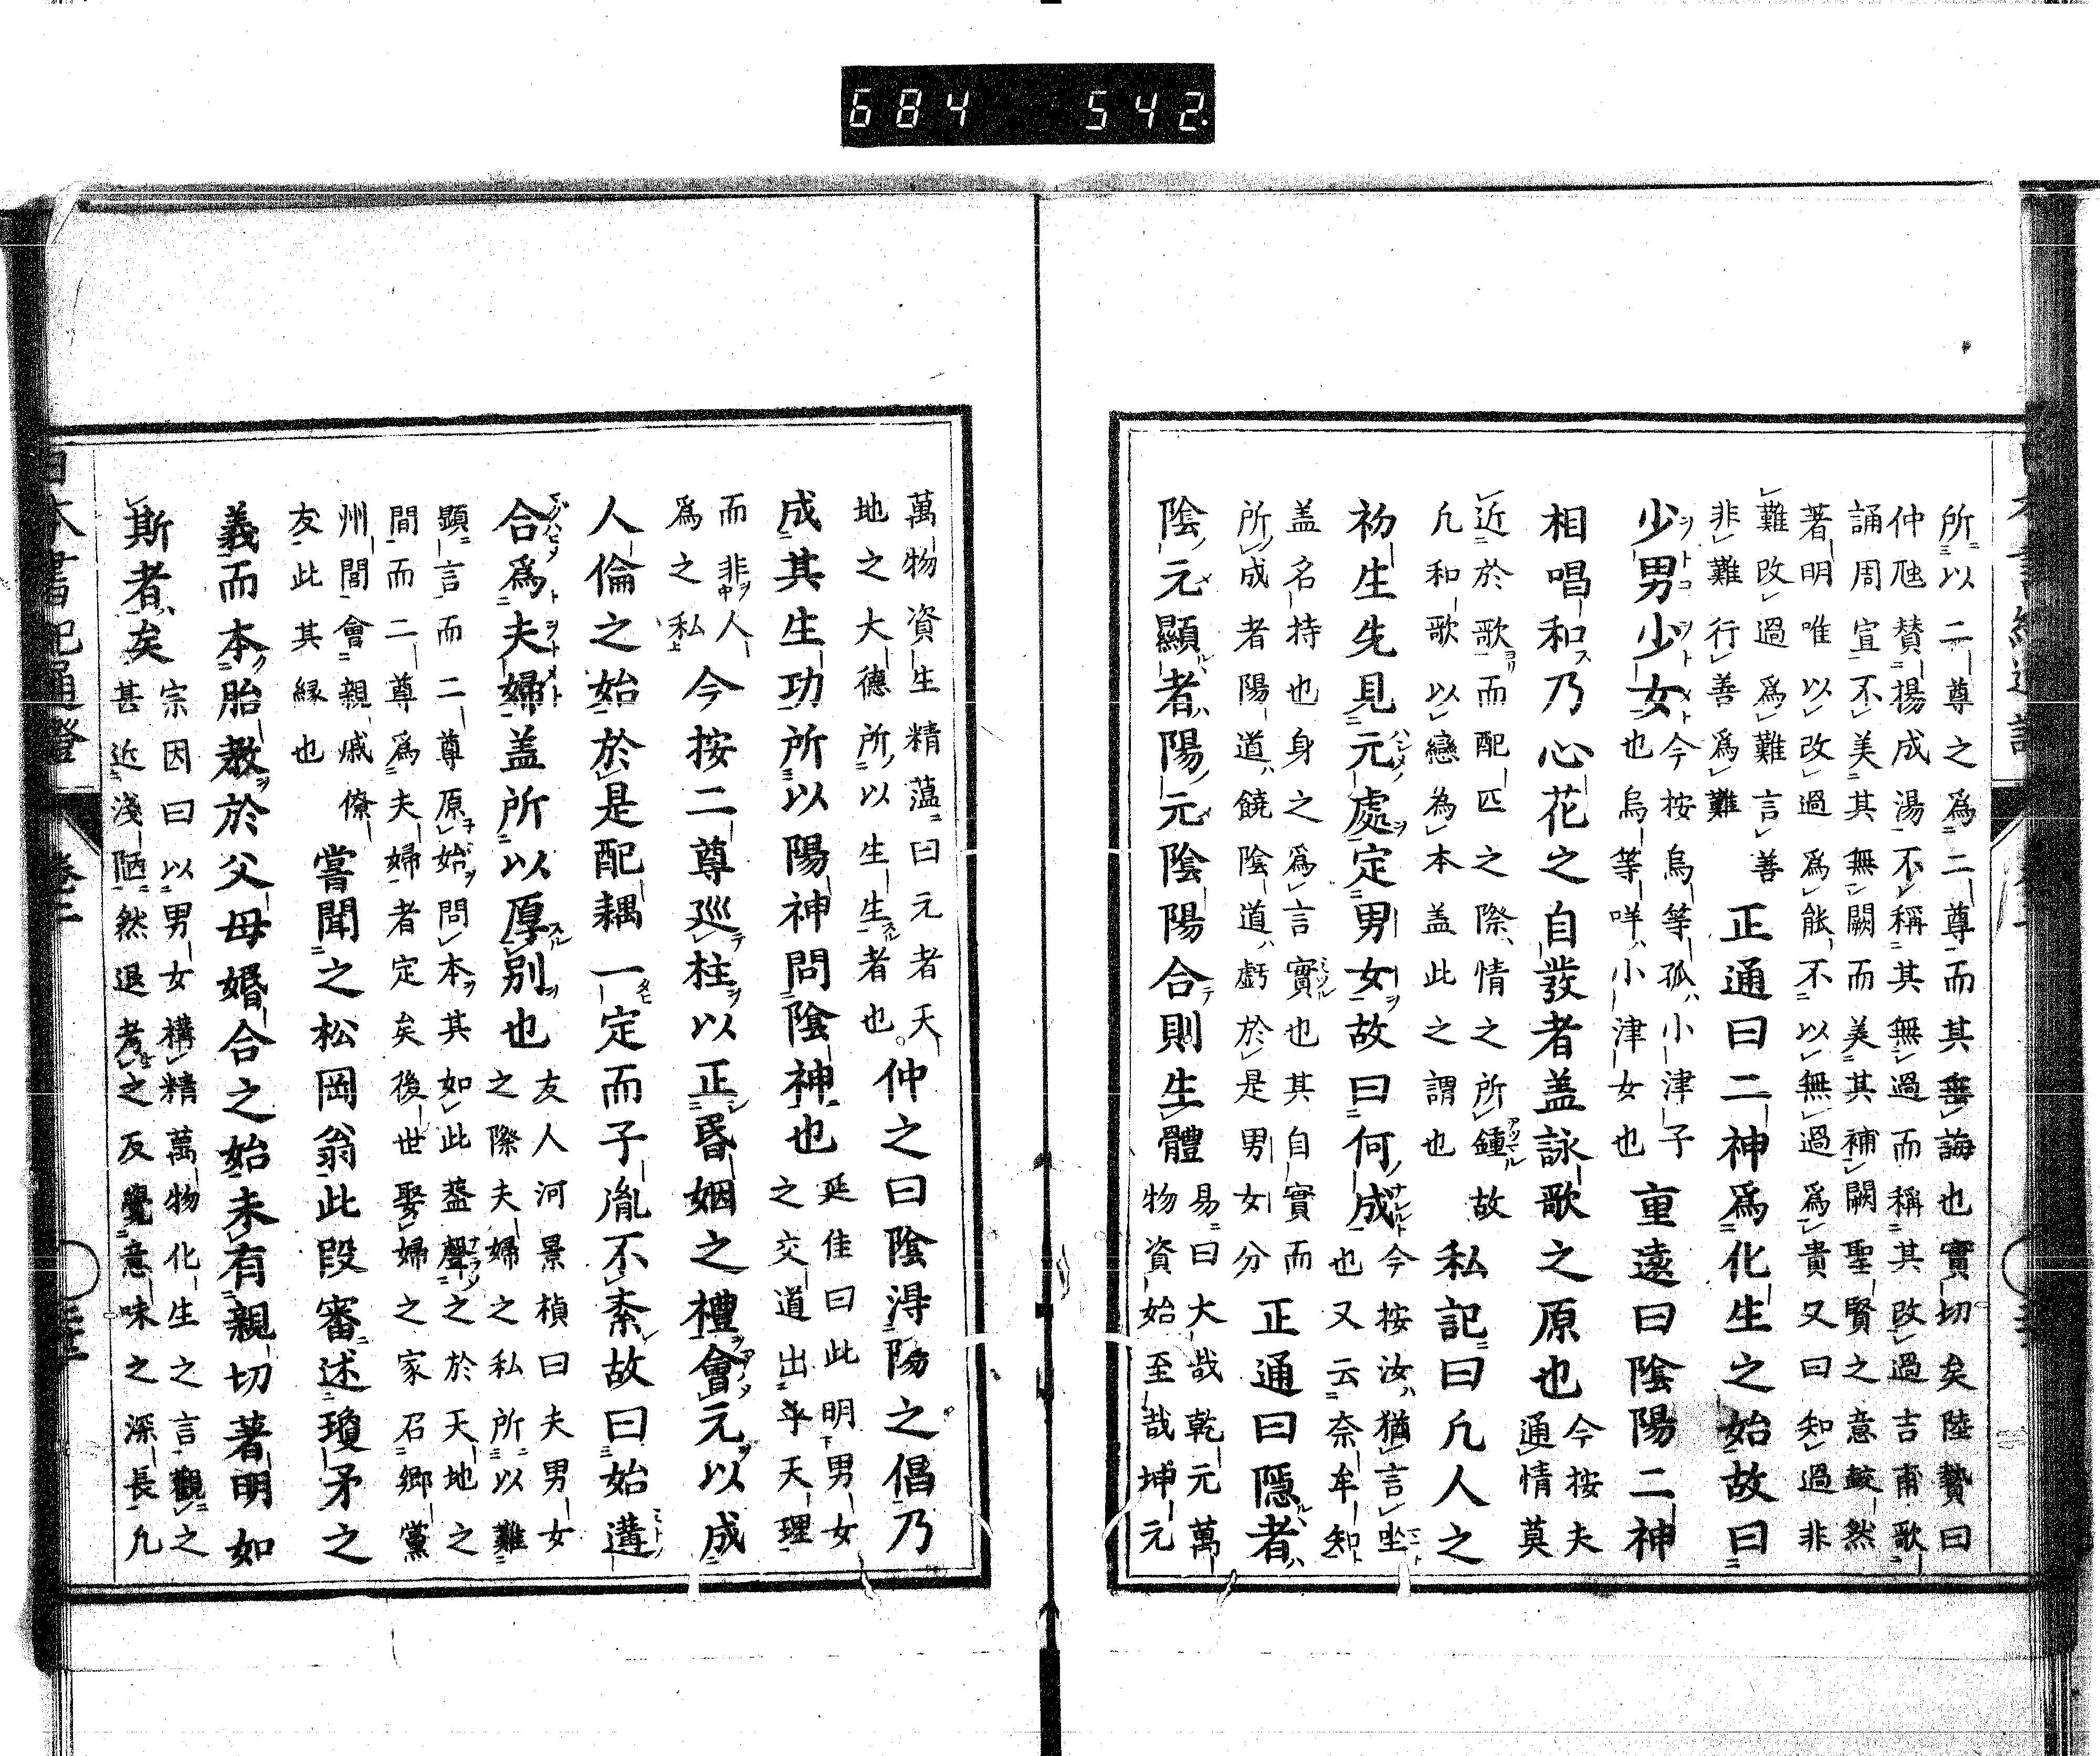 684 542
所以二尊之爲二尊而其無誨也實切矣陸贄曰
仲虺賛揚成湯不稱其無過而稱其改過吉甫歌
誦周宣不美其無闕而美其補闕聖賢之意較然
著明唯以改過爲能不以無過爲貴又曰知過非
難改過爲難言善
非難行善爲難
正通曰二神爲化生之始故曰
少男少女
今按烏等孤小津子
也烏等咩小津女也
重遠曰陰陽二神
相唱和乃心花之自發者盖詠歌之原也
今按夫
通情莫
近於歌而配匹之際情之所鍾故
凢和歌以戀為本盖此之謂也
私記曰凢人之
初生先見元處定男女故曰何成
今按汝猶言坐
也又云奈牟知
盖名持也身之爲言實也其自實而
所成者陽道饒陰道虧於是男女分
正通曰隱者
陰元顯者陽元陰陽合則生體
易曰大哉乾元萬
物資始至哉坤元
萬物資生精薀曰元者天
地之大德所以生生者也
仲之曰陰淂陽之倡乃
成其生功所以陽神問陰神也
延佳曰此明男女
之交道出乎天理
而非人
爲之私
今按二尊巡柱以正昏姻之禮會元以成
人倫之始於是配耦一定而子胤不紊故曰始遘
合爲夫婦盖所以厚別也
友人河景楨曰夫男女
之際夫婦之私所以難
顯言而二尊原始問本其如此葢聲之於天地之
間而二尊爲夫婦者定矣後世娶婦之家召郷黨
州閭會親戚僚
友此其縁也
嘗聞之松岡翁此段審述瓊矛之
義而本胎教於父母婚合之始未有親切著明如
斯者矣
宗因曰以男女構精萬物化生之言觀之
甚近淺陋然退考之反覺意味之深長凢
日本書紀通證 卷三